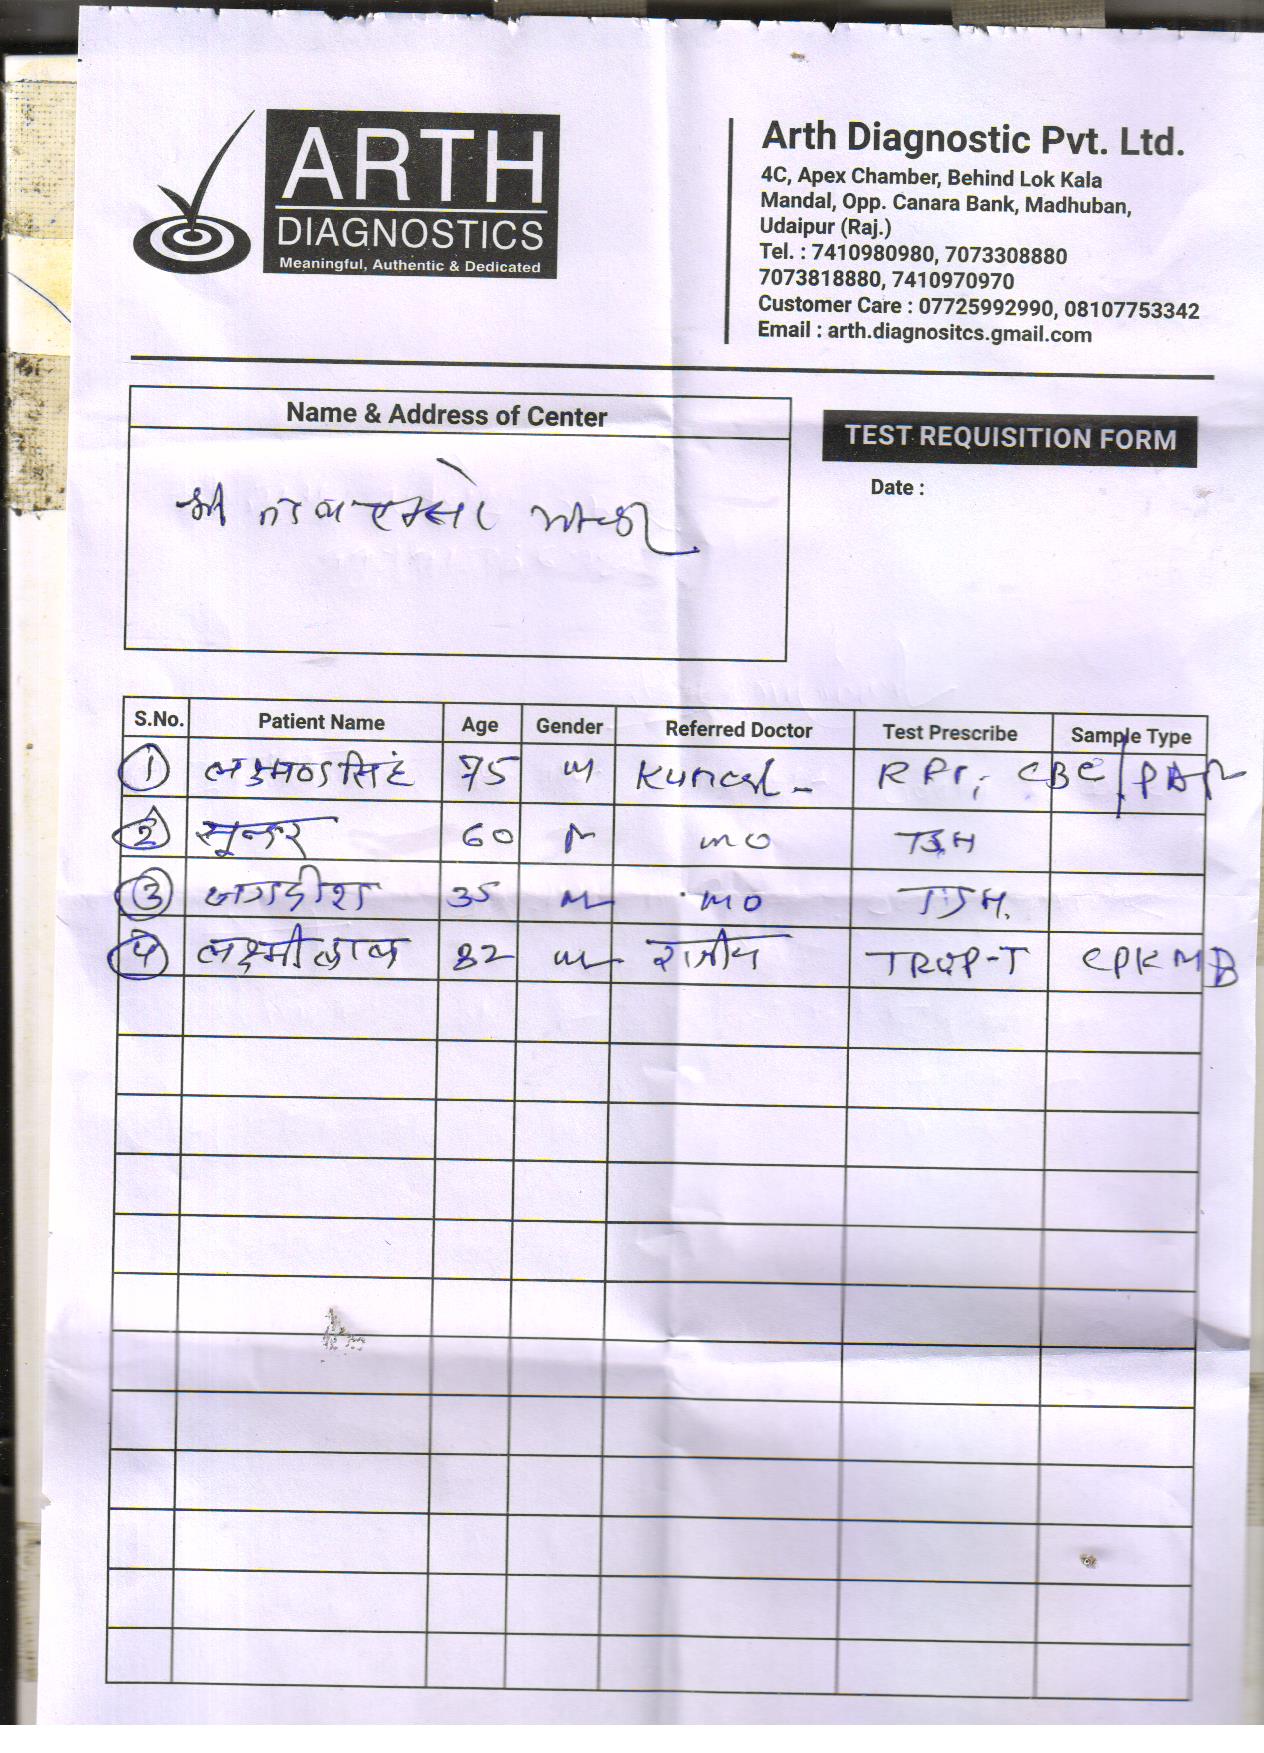 ARTH
DIAGNOSTICS
Meaningful, Authentic & Dedicated
Arth Diagnostic Pvt. Ltd.
4C, Apex Chamber, Behind Lok Kala
Mandal, Opp. Canara Bank, Madhuban,
Udaipur (Raj.)
Tel. : 7410980980, 7073308880
7073818880, 7410970970
Customer Care : 07725992990, 08107753342
Email : arth.diagnositcs.gmail.com
Name & Address of Center
TEST REQUISITION FORM
Date :
श्री
S.No. Patient Name Age Gender Referred Doctor Test Prescribe Sample Type
1 75 m CBC
2 सुन्दर 60 MO TSH
3 जगदीश 35 m MO TSH.
4 लक्ष्मीलाल 82 m राजीव TROP-T CPKMB